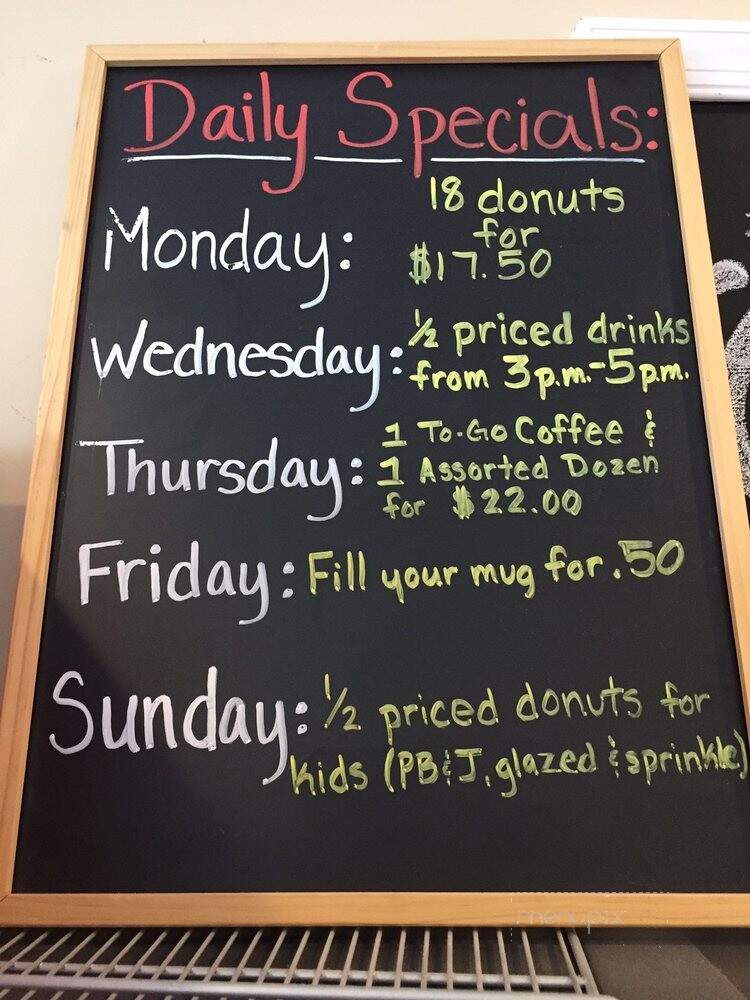 Daily Specials:
Monday: 18 donuts
for
$17.50
Wednesday: ½ priced drinks
from 3p.m.-5p.m.
Thursday: 1 To-Go Coffee &
1 Assorted Dozen
for $22.00
Friday: Fill your mug for .50
Sunday: ½ priced donuts for
kids (PB&J, glazed & sprinkle)
menupix